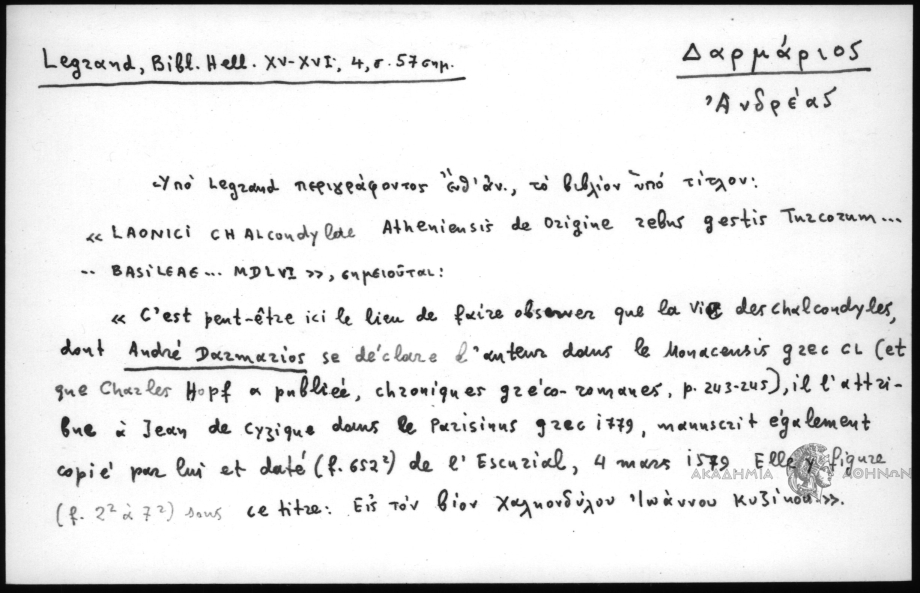 Legrand, Bibl. Hell. XV-XVI, 4, σ. 57 σημ.
Δαρμάριος
Ἀνδρέας
Ὑπό Legrand περιγράφοντος ἔνθ' ἀν., τό βιβλίον ὑπό τίτλον:
« LAONICI CHALcondylae Atheniensis de Origine rebus gestis Turcorum...
.. BASILEAE... MDLVI », σημειοῦται:
« C'est peut-être ici le lieu de faire observer que la vie des Chalcondyles,
dont André Darmarios se déclare l'auteur dans le Monacensis grec CL (et
que Charles Hopf a publiée, chroniques gréco-romanes, p. 243-245), il l'attri-
bue à Jean de Cyzique dans le Parisinus grec 1779, manuscrit également
copié par lui et daté (f. 652²) de l'Escurial, 4 mars 1579 Elle y figure
(f. 2² à 7²) sous ce titre: Εἰς τόν βίον Χαλκονδύλου Ἰωάννου Κυζίκου ».
ΑΚΑΔΗΜΙΑ ΑΘΗΝΩΝ